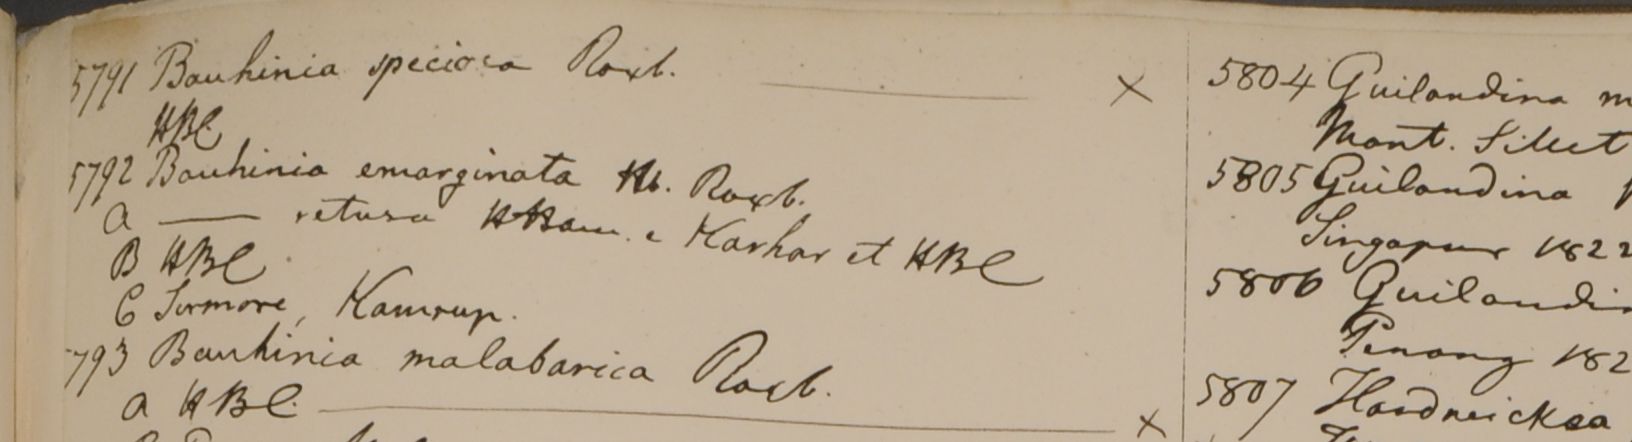 5791 Bauhinia speciosa Roxb. ——— X
HBC
5792 Bauhinia emarginata Hb. Roxb.
a —— retusa HHam. e Karhar et HBC
B HBC
C Sirmore, Kamrup.
5793 Bauhinia malabarica Roxb.
a HBC. ——— X
5804 Guilandina m
Mont. Sillet
5805 Guilandina
Singapur 1822
5806 Guilandin
Penang 182
5807 Hardwickea